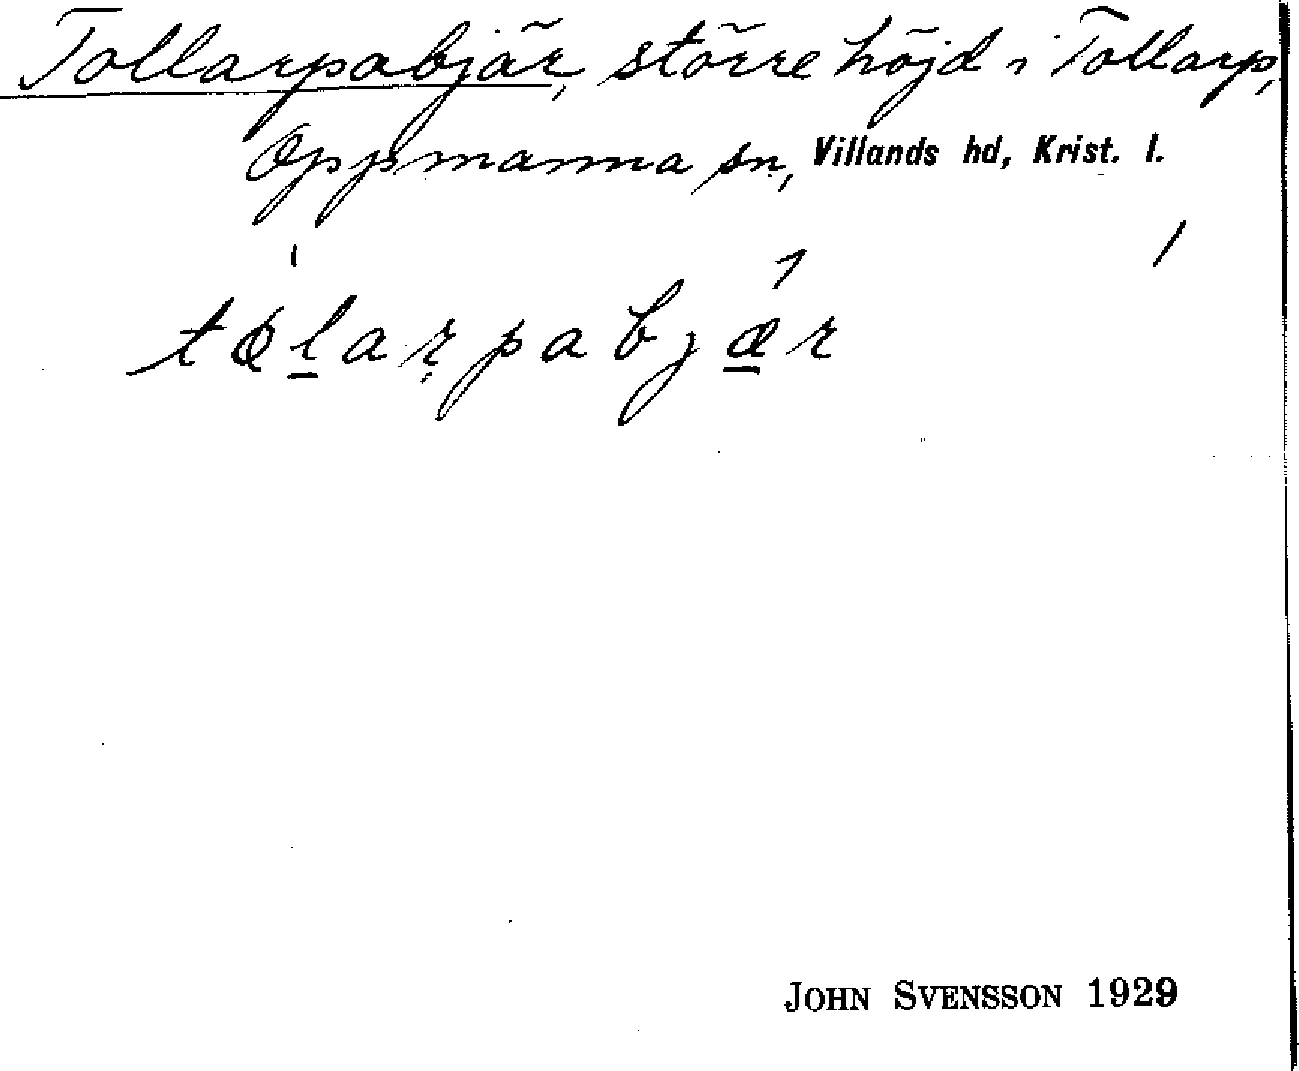 Tollarpabjär, större höjd i Tollarp,
Oppmanna sn, Villands hd, Krist. l.
tølarpabjær
JOHN SVENSSON 1929